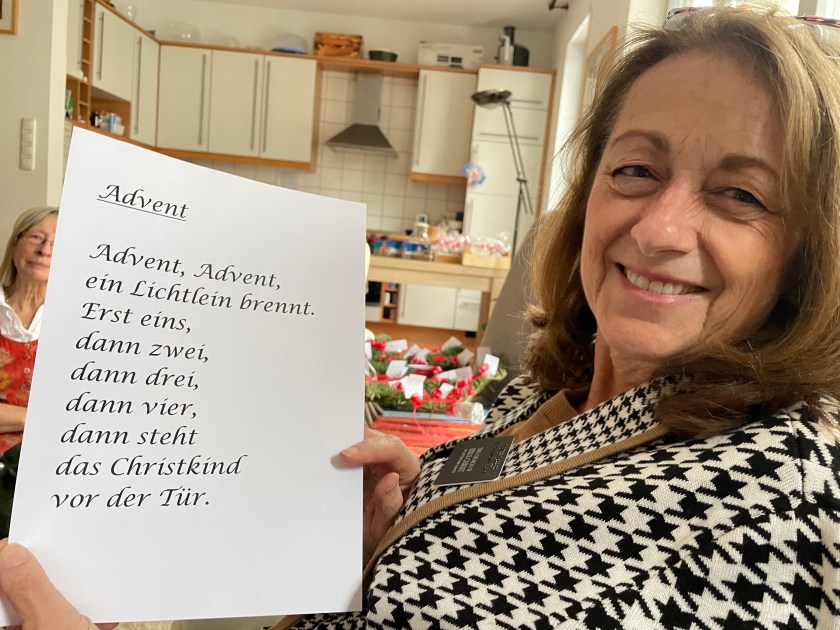 Advent
Advent, Advent,
ein Lichtlein brennt.
Erst eins,
dann zwei,
dann drei,
dann vier,
dann steht
das Christkind
vor der Tür.